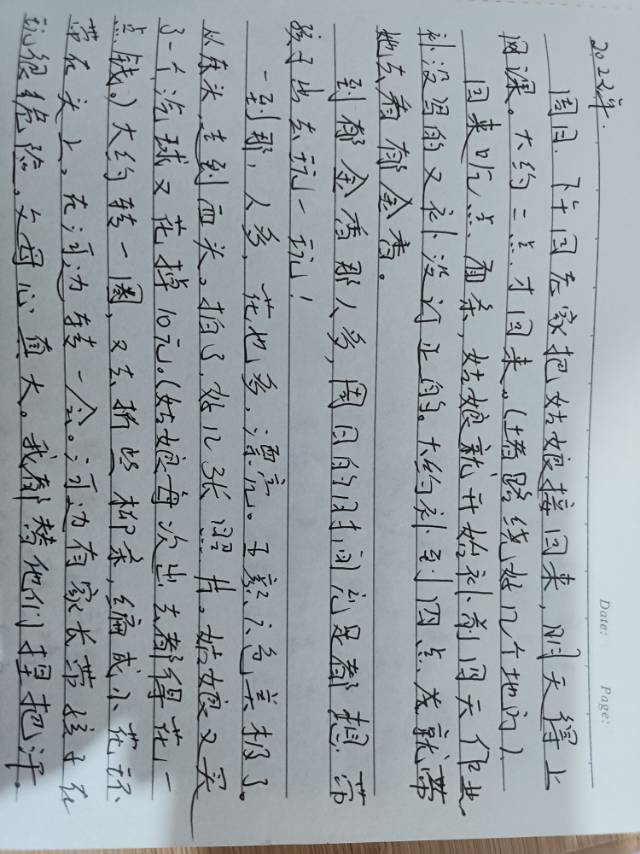 Date: Page:
2022年.
周日.下午回在家把姑娘接回来,刚天得上
网课。大约二点才回来。(堵路绕好几个地方)
回来吃点面条,姑娘就开始补前问天作业
补没写的又补没订正的。大约补到四点左就带
她去看郁金香。
到郁金香那人多,周日的时间就是都想带
孩子出去玩一玩!
一到那,人多,花也多,漂亮。五颜六色美极了。
从东头,走到西头。拍了好几张照片。姑娘又买
了一个汽球又花掉10元。(姑娘每次出去都得花一
点钱。)大约转一圈,又去折些柳条,编成小花环
带在头上。在河边转一会。河边有家长带孩子在
玩很危险。父母心真大。我都替他们捏把汗。